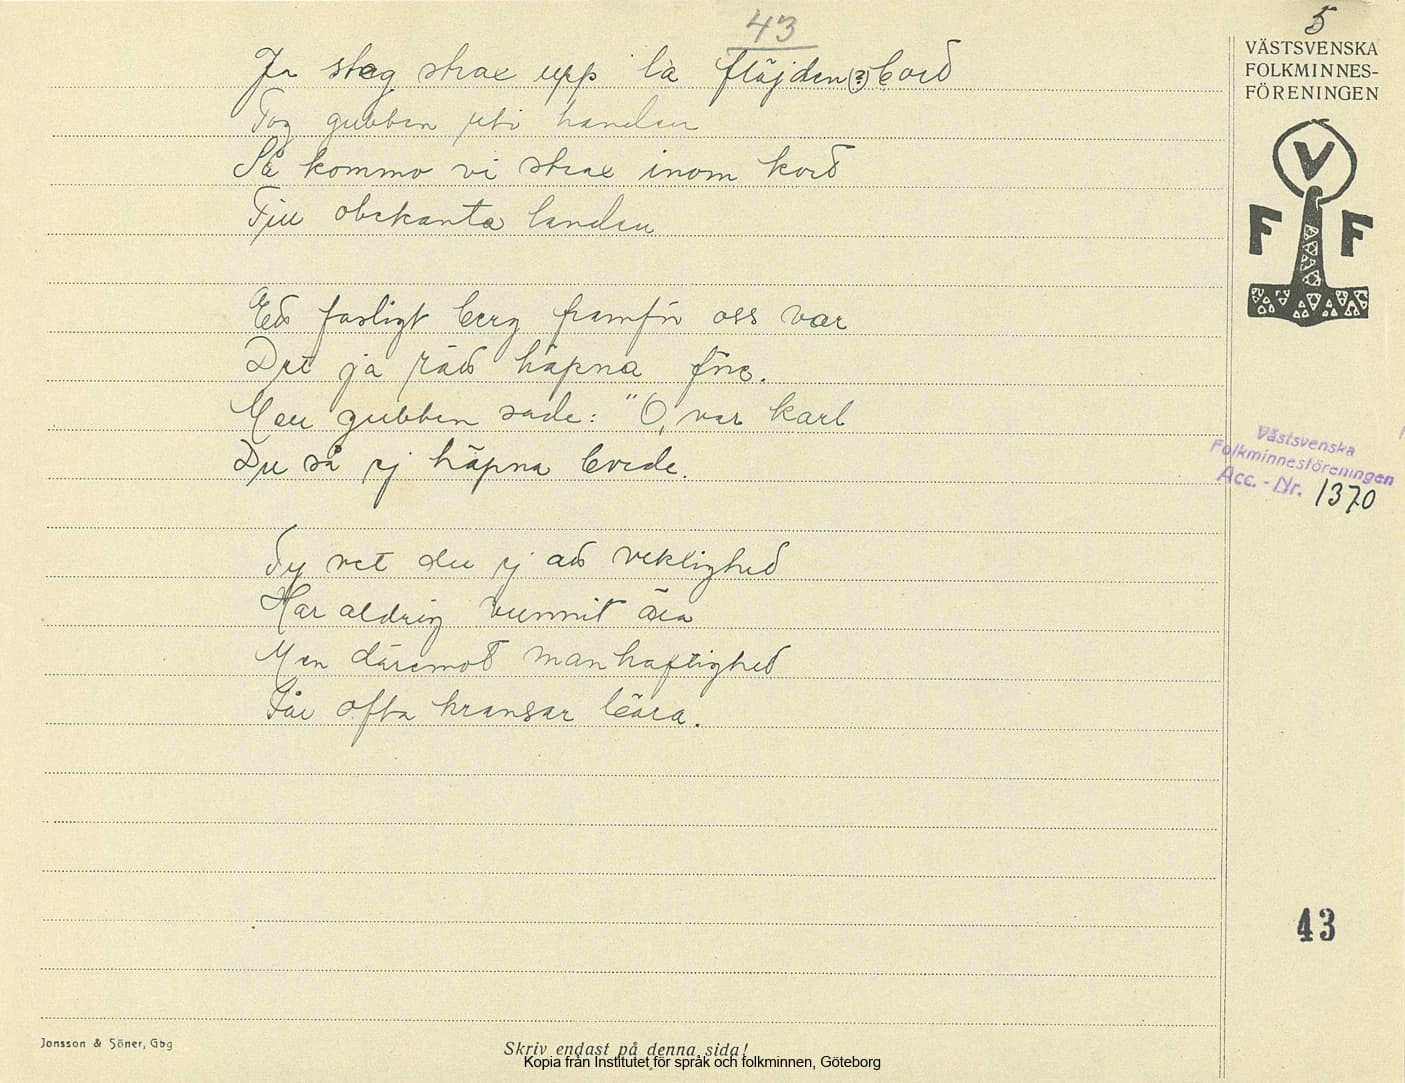 43
5
Ja steg strax upp la fløjden (?) bord
Tog gubben uti handen
Så kommo vi strax inom kord
Till obekanta landen
Ed farligt berg framför oss var
Det ja räds häpna före.
Men gubben sade: "O, var karl
Du så ej häpna borde.
Ty vet du ej ad veklighed
Har aldrig vunnit ära
Men däremod manhaftighed
Får ofta kransar bära.
VÄSTSVENSKA
FOLKMINNES-
FÖRENINGEN
V
F F
Västsvenska
Folkminnesföreningen
Acc. - Nr. 1370
43
Jonsson & Söner, Gbg
Skriv endast på denna sida!
Kopia från Institutet för språk och folkminnen, Göteborg